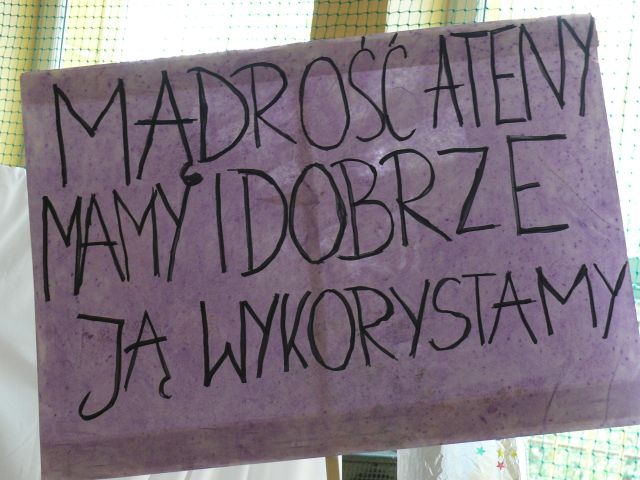 MĄDROŚĆ ATENY
MAMY I DOBRZE
JĄ WYKORYSTAMY